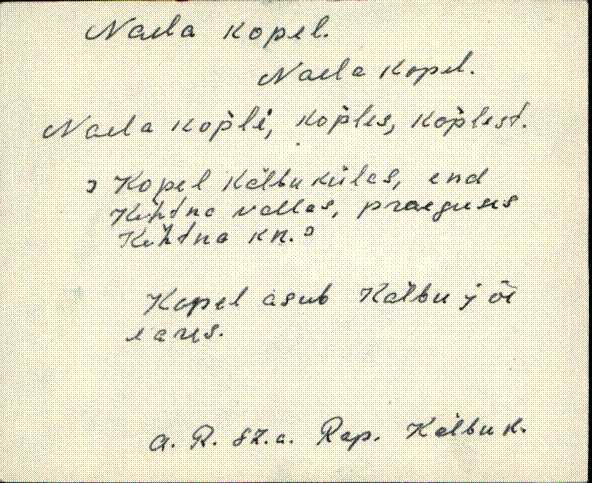 Naela kopel.
Naela kopel.
Naela kopli, koples, koplest.
Kopel Kälbu külas, end
Kehtna vallas, praeguses
Kehtna kn.
Kopel asub Kälbu jõe
eares.
A. R. Rap. Kälbu k.